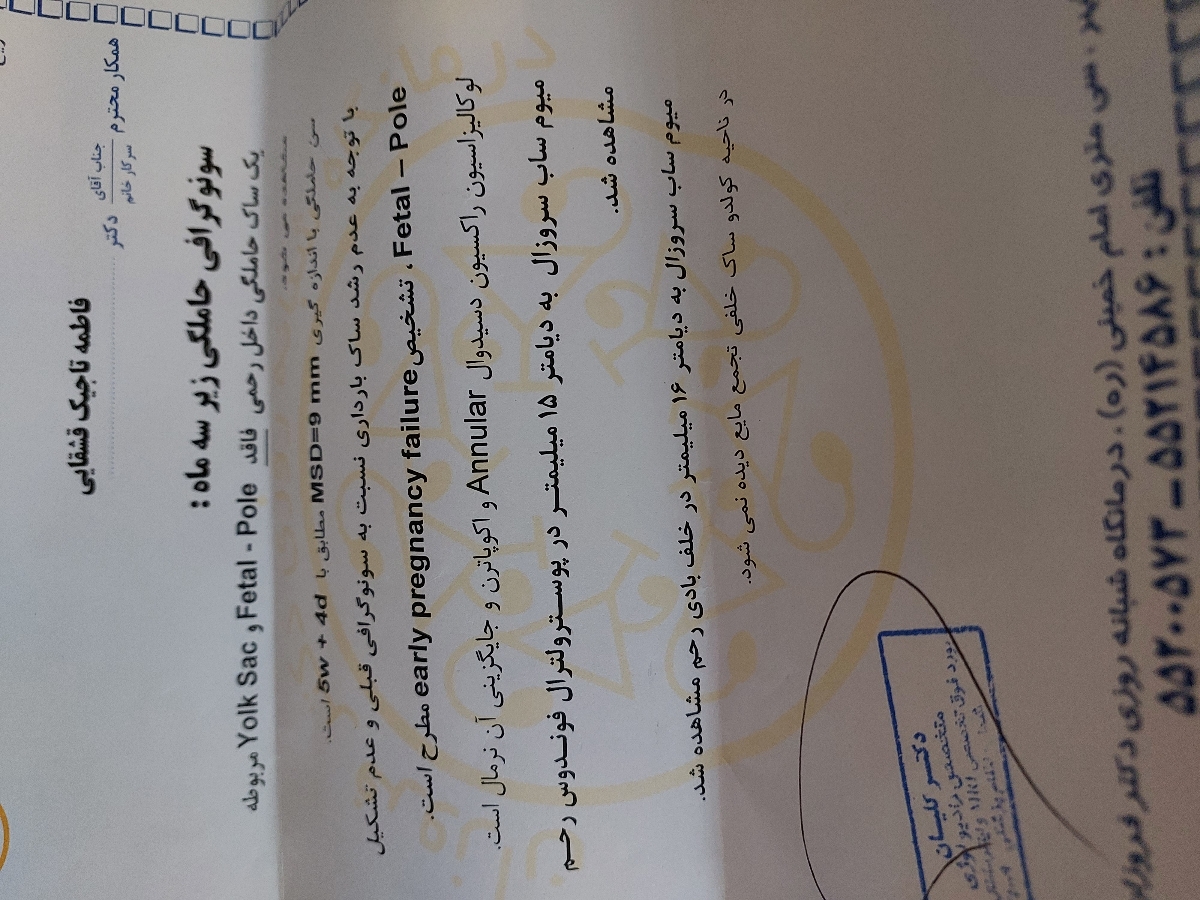 همکار محترم جناب آقای سرکار خانم دکتر
فاطمه تاجیک قشقایی
سونوگرافی حاملگی زیر سه ماه :
یک ساک حاملگی داخل رحمی فاقد Yolk Sac و Fetal - Pole مربوطه
مشاهده می شود.
سن حاملگی با اندازه گیری MSD=9 mm مطابق با 5w + 4d است.
با توجه به عدم رشد ساک بارداری نسبت به سونوگرافی قبلی و عدم تشکیل
Fetal – Pole ، تشخیص early pregnancy failure مطرح است.
لوکالیزاسیون راکسیون دسیدوال Annular و اکوپاترن و جایگزینی آن نرمال است.
میوم ساب سروزال به دیامتر ۱۵ میلیمتر در پوسترولترال فوندوس رحم
مشاهده شد.
میوم ساب سروزال به دیامتر ۱۶ میلیمتر در خلف بادی رحم مشاهده شد.
در ناحیه کولدو ساک خلفی تجمع مایع دیده نمی شود.
دکتر کلیان
متخصص رادیولوژی
بورد فوق تخصصی
متری امام خمینی (ره)، درمانگاه شبانه روزی دکتر
تلفن : ۵۵۲۱۴۵۸۶ – ۵۵۲۰۰۵۷۳